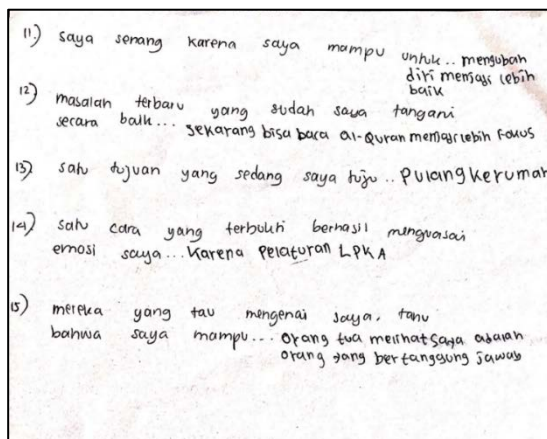 11.) saya senang karena saya mampu untuk.. mengubah
diri menjadi lebih
baik
12) masalah terbaru yang sudah saya tangani
secara baik... sekarang bisa baca al-Quran menjadi lebih Fokus
13) satu tujuan yang sedang saya tuju .. Pulang kerumah
14) satu cara yang terbukti berhasil menguasai
emosi saya... Karena Pelaturan LPKA
15) mereka yang tau mengenai saya, tahu
bahwa saya mampu... orang tua melihat saya adalah
orang yang bertanggung jawab